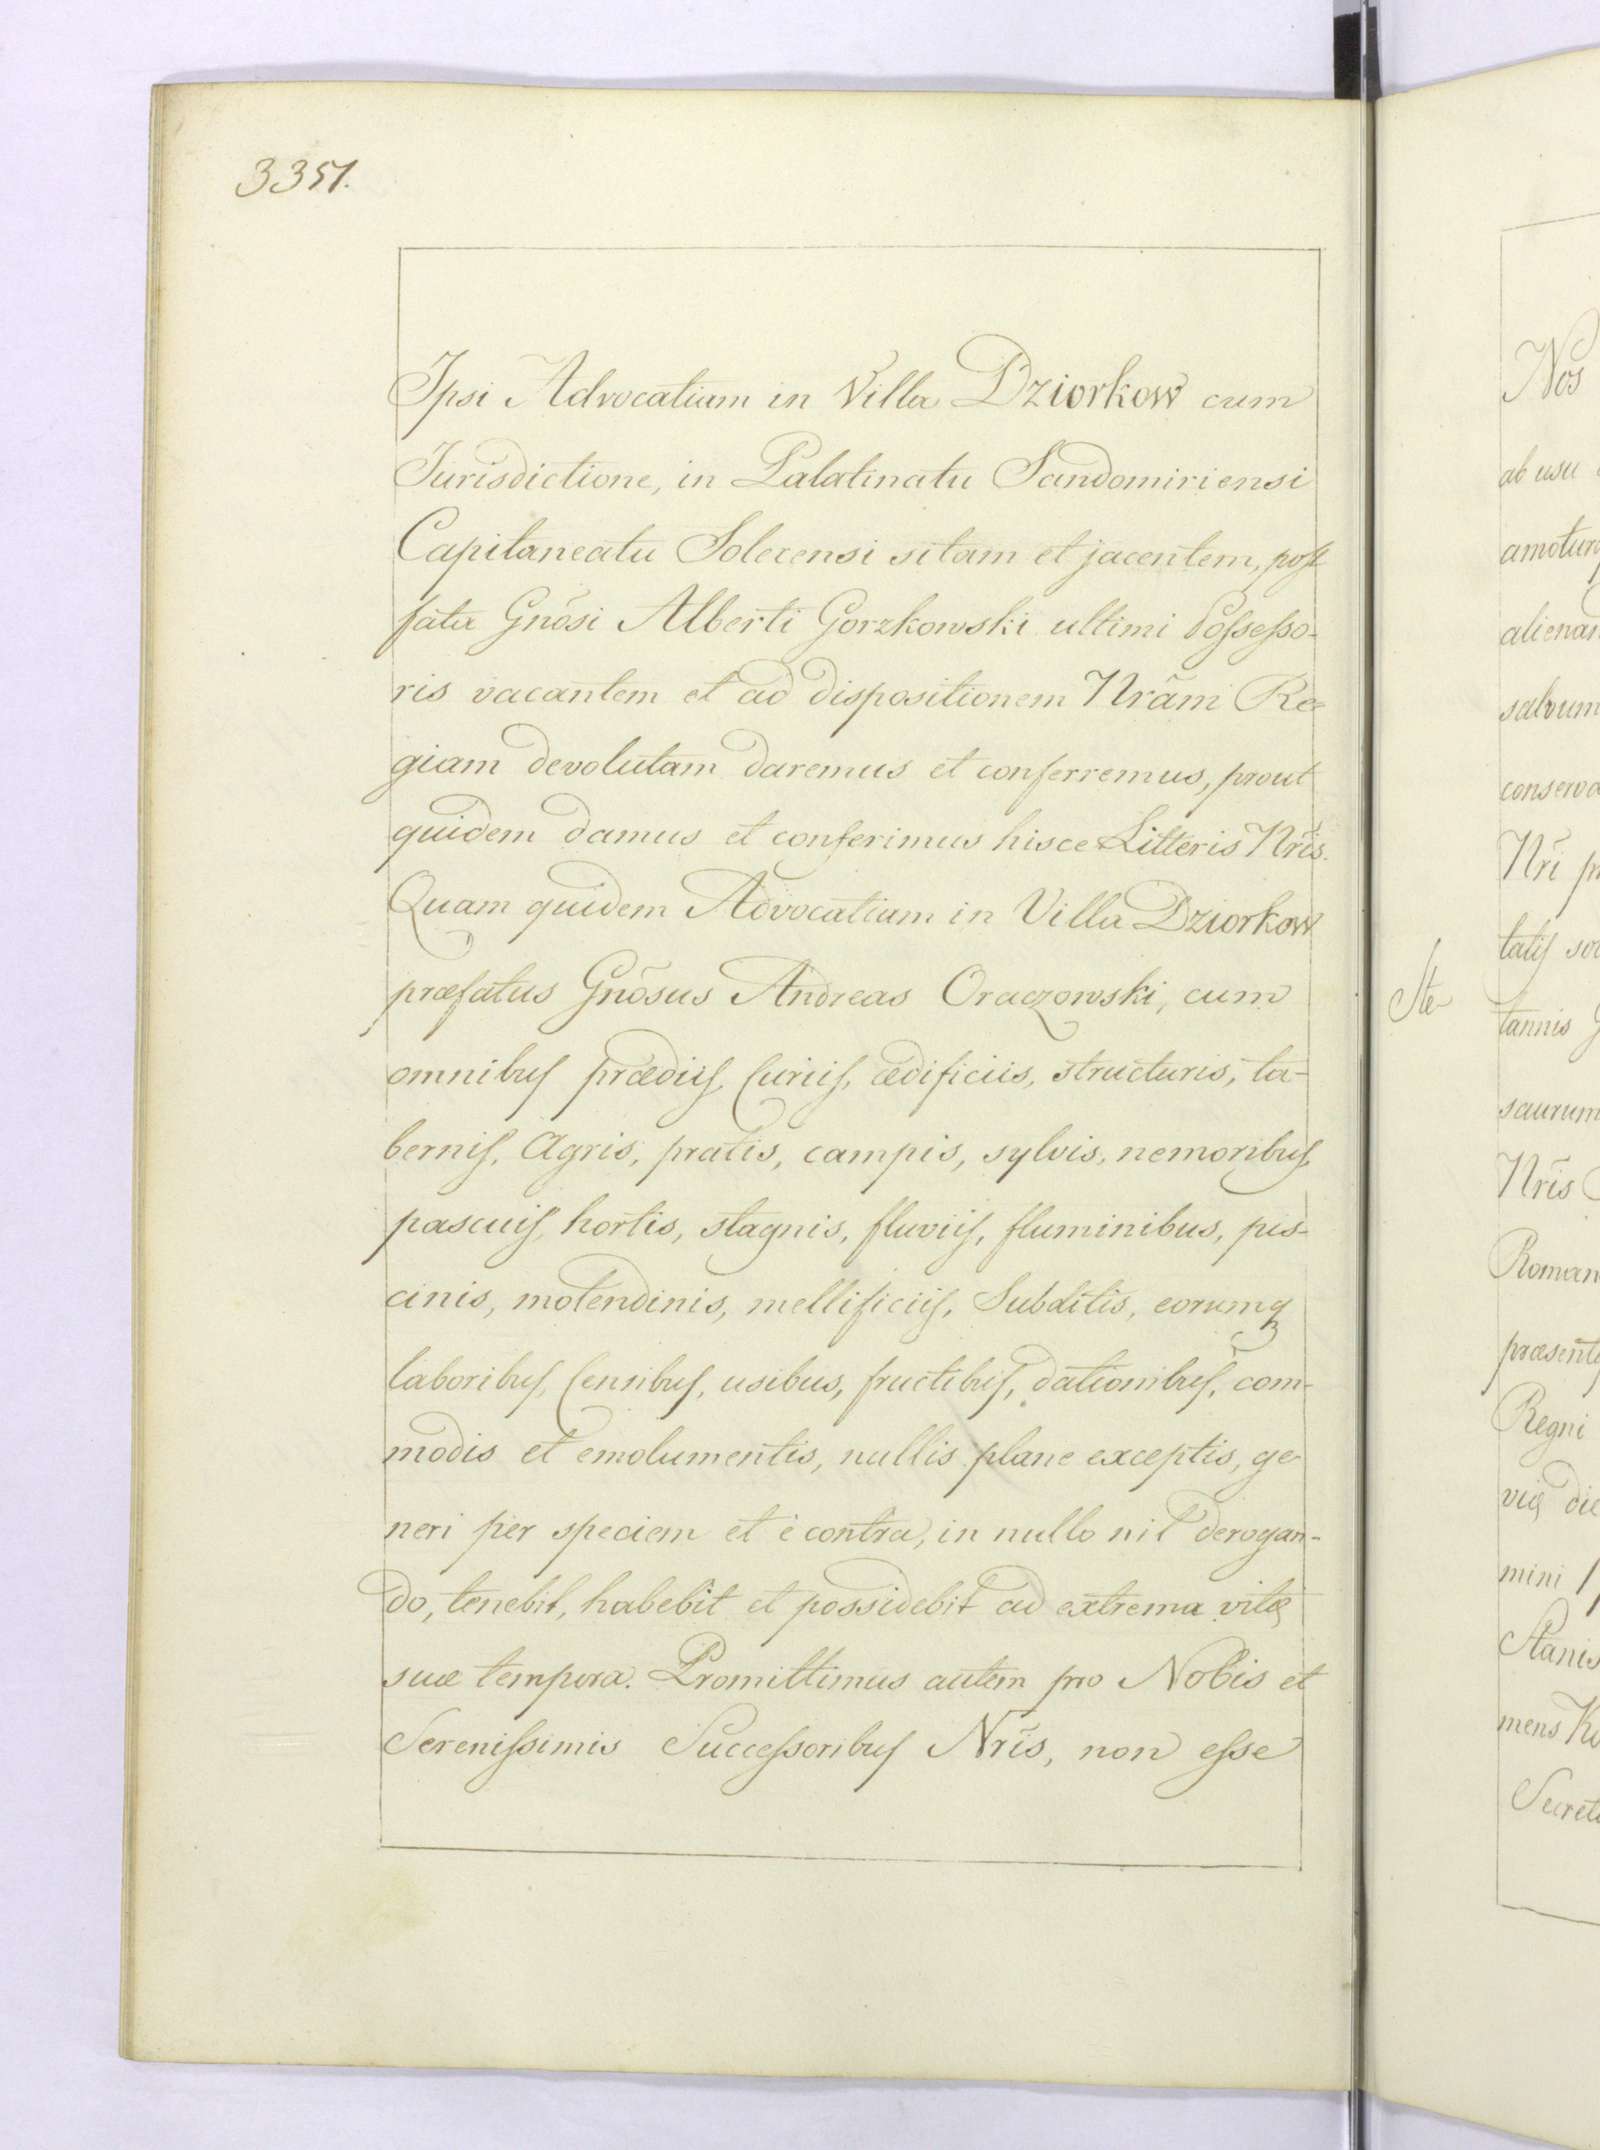 3351.
Ipsi Advocatiam in Villa Dziorkow cum
Jurisdictione, in Palatinatu Sandomiriensi
Capitaneatu Solecensi sitam et jacentem, post
fata Gnõsi Alberti Gorzkowski ultimi Possesso-
ris vacantem et ad dispositionem Nrãm Re
giam devolutam daremus et conferremus, prout
quidem damus et conferimus hisce Litteris Nrĩs.
Quam quidem Advocatiam in Villa Dziorkow
præfatus Gnõsus Andreas Oraczowski, cum
omnibus prædiis, Curiis, ædificiis, structuris, ta-
bernis, Agris, pratis, campis, sylvis, nemoribus,
pascuis, hortis, stagnis, fluviis, fluminibus, pis-
cinis, molendinis, mellificiis, Subditis, eorumq
laboribus, Censibus, usibus, fructibus, dationibus, com-
modis et emolumentis, nullis plane exceptis, ge
neri per speciem et è contra, in nullo nil derogan-
do, tenebit, habebit et possidebit ad extrema vitæ
suæ tempora. Promittimus autem pro Nobis et
Serenissimis Successoribus Nrĩs, non esse
Nos
ab usu
amotur
alienan
salvum
conserva
Nrĩ
Ste
tannis
saurum
Nrĩs
Roman
præsent
Regni
mini
Stanis
mens
Secret